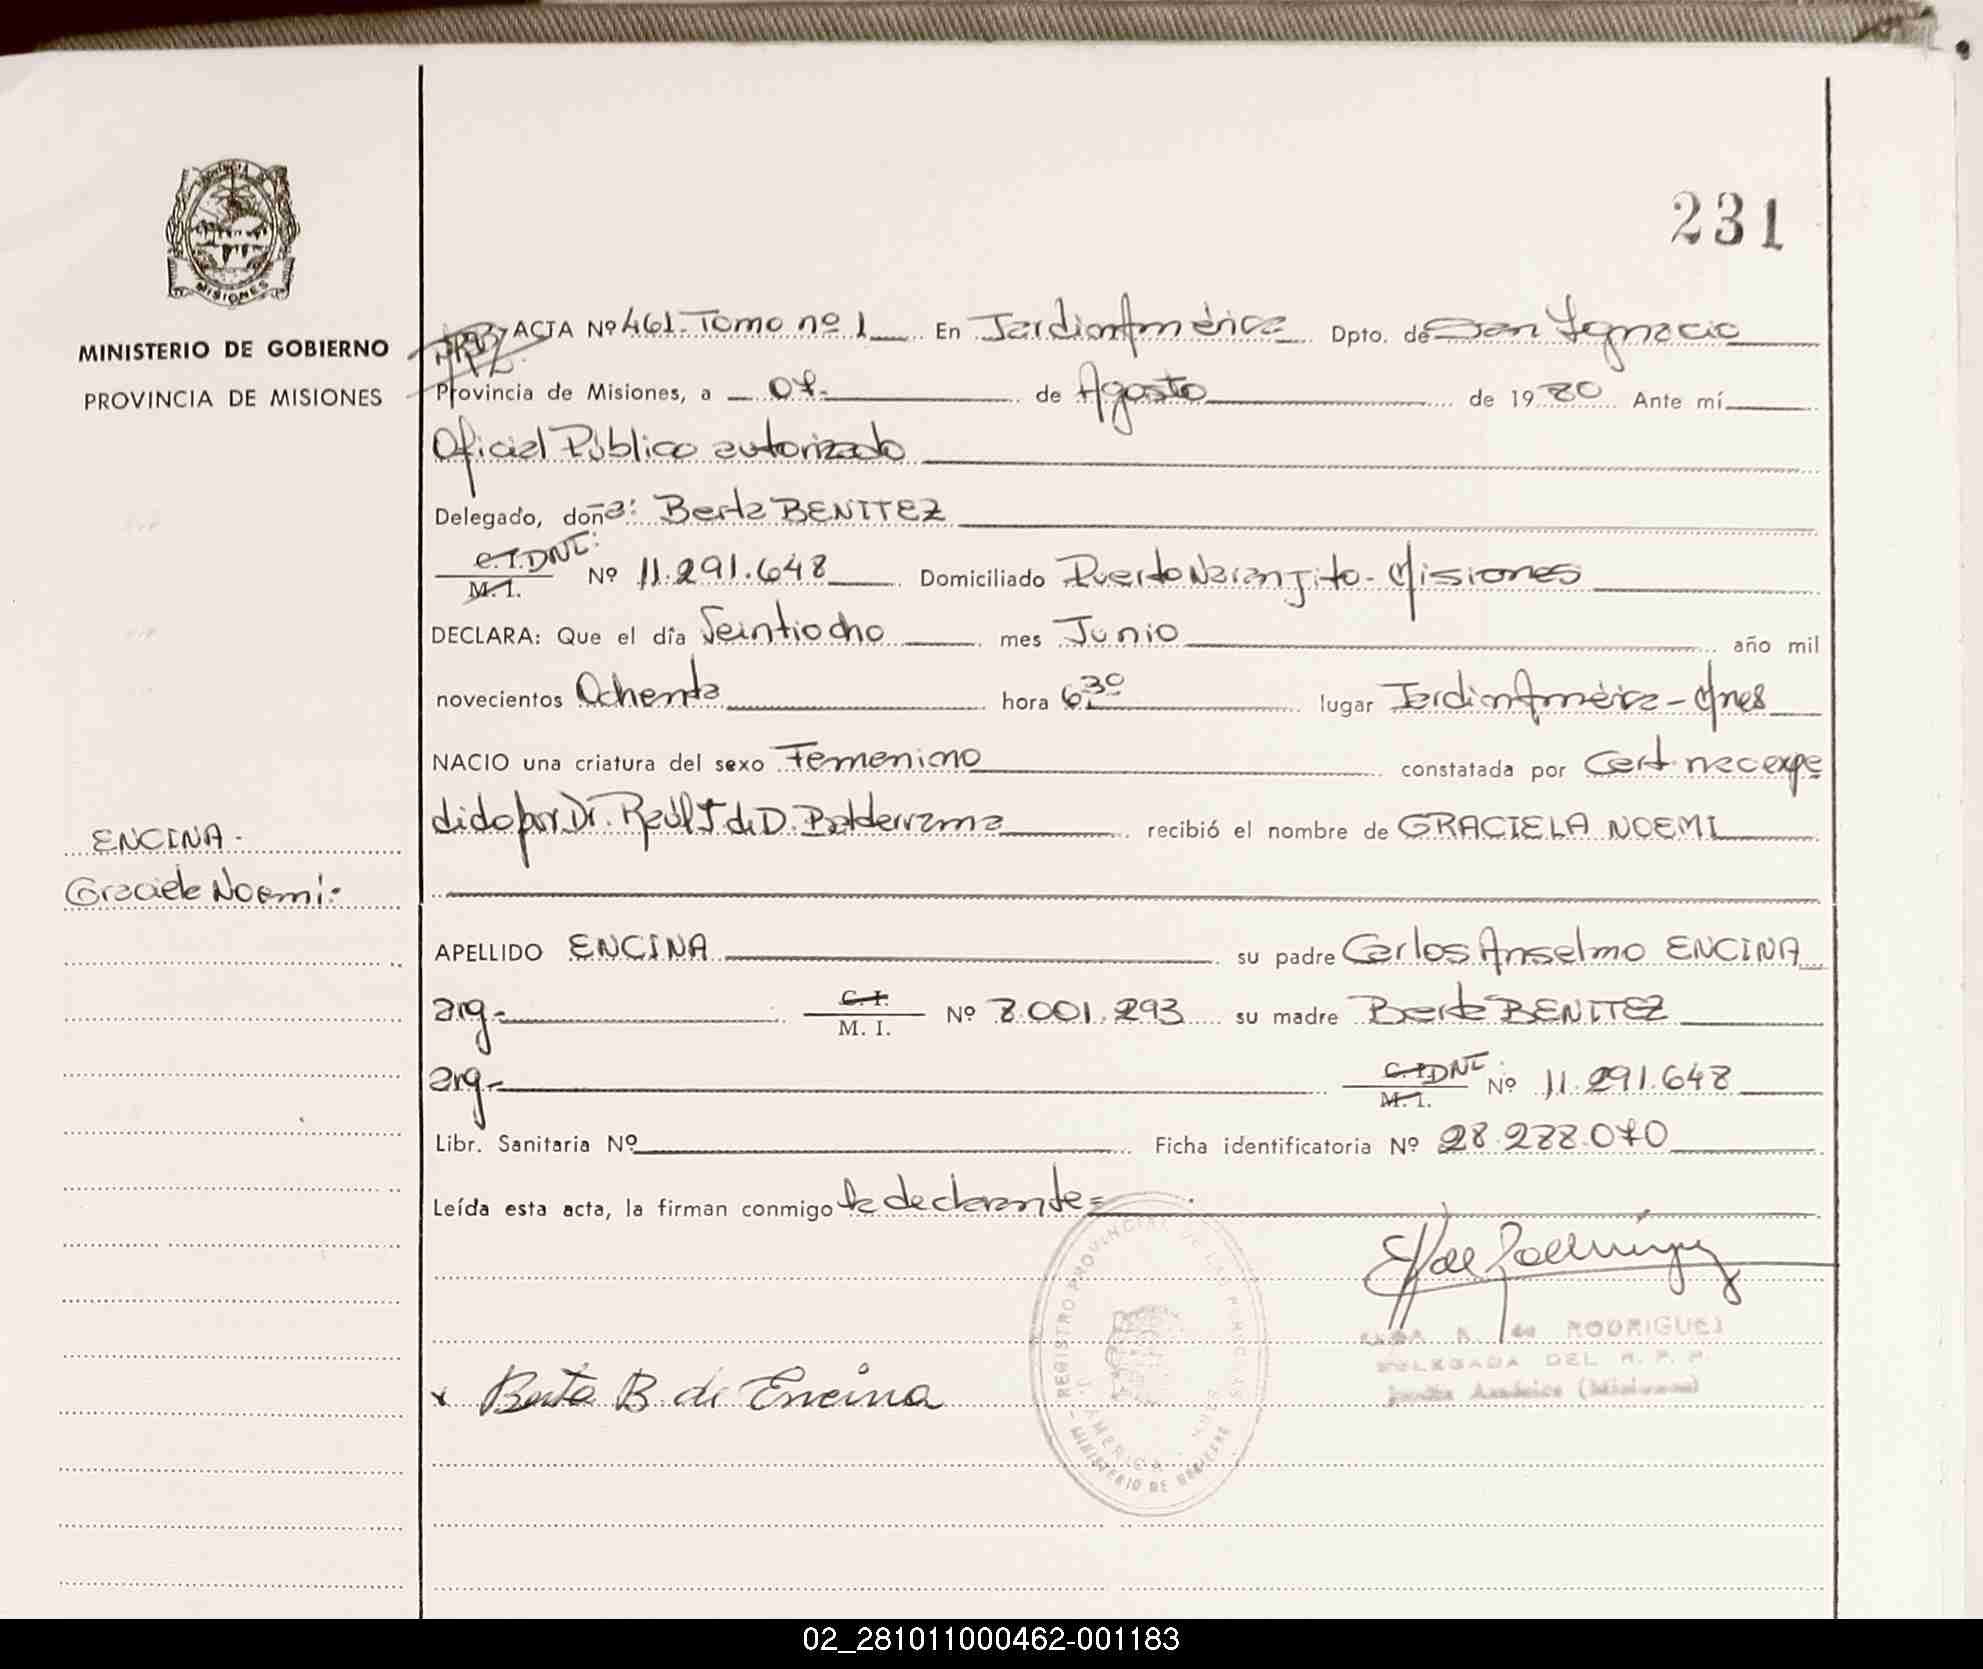 231
PROVINCIA DE
MISIONES
MINISTERIO DE GOBIERNO
PROVINCIA DE MISIONES
ACTA Nº 461. Tomo nº 1 En Jardin América Dpto. de San Ignacio
Provincia de Misiones, a 07. de Agosto de 1980 Ante mí
Oficial Público autorizado
Delegado, doña: Berta BENITEZ
C.I. DNI:
M. I. Nº 11.291.648 Domiciliado Puerto Naranjito - Misiones
DECLARA: Que el día Veintiocho mes Junio año mil
novecientos Ochenta hora 6,30 lugar Jardin América - Mnes
NACIO una criatura del sexo Femenino constatada por Cert nac expe
dido por Dr. Raúl J de D. Balderrama recibió el nombre de GRACIELA NOEMI
ENCINA -
Graciela Noemi:
APELLIDO ENCINA su padre Carlos Anselmo ENCINA
arg- C. I.
M. I. Nº 8.001.293 su madre Berta BENITEZ
arg- C. I. DNI:
M. I. Nº 11.291.648
Libr. Sanitaria Nº Ficha identificatoria Nº 28.288.070
Leída esta acta, la firman conmigo la declarante =
REGISTRO PROVINCIAL DE LAS PERSONAS
AMERICA
MINISTERIO DE GOBIERNO
ELBA R. de RODRIGUEZ
DELEGADA DEL R. P. P.
Jardín América (Misiones)
x Berta B. de Encina
02_281011000462-001183